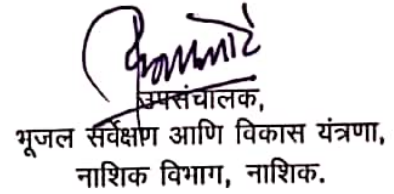 उपसंचालक,
भूजल सर्वेक्षण आणि विकास यंत्रणा,
नाशिक विभाग, नाशिक.